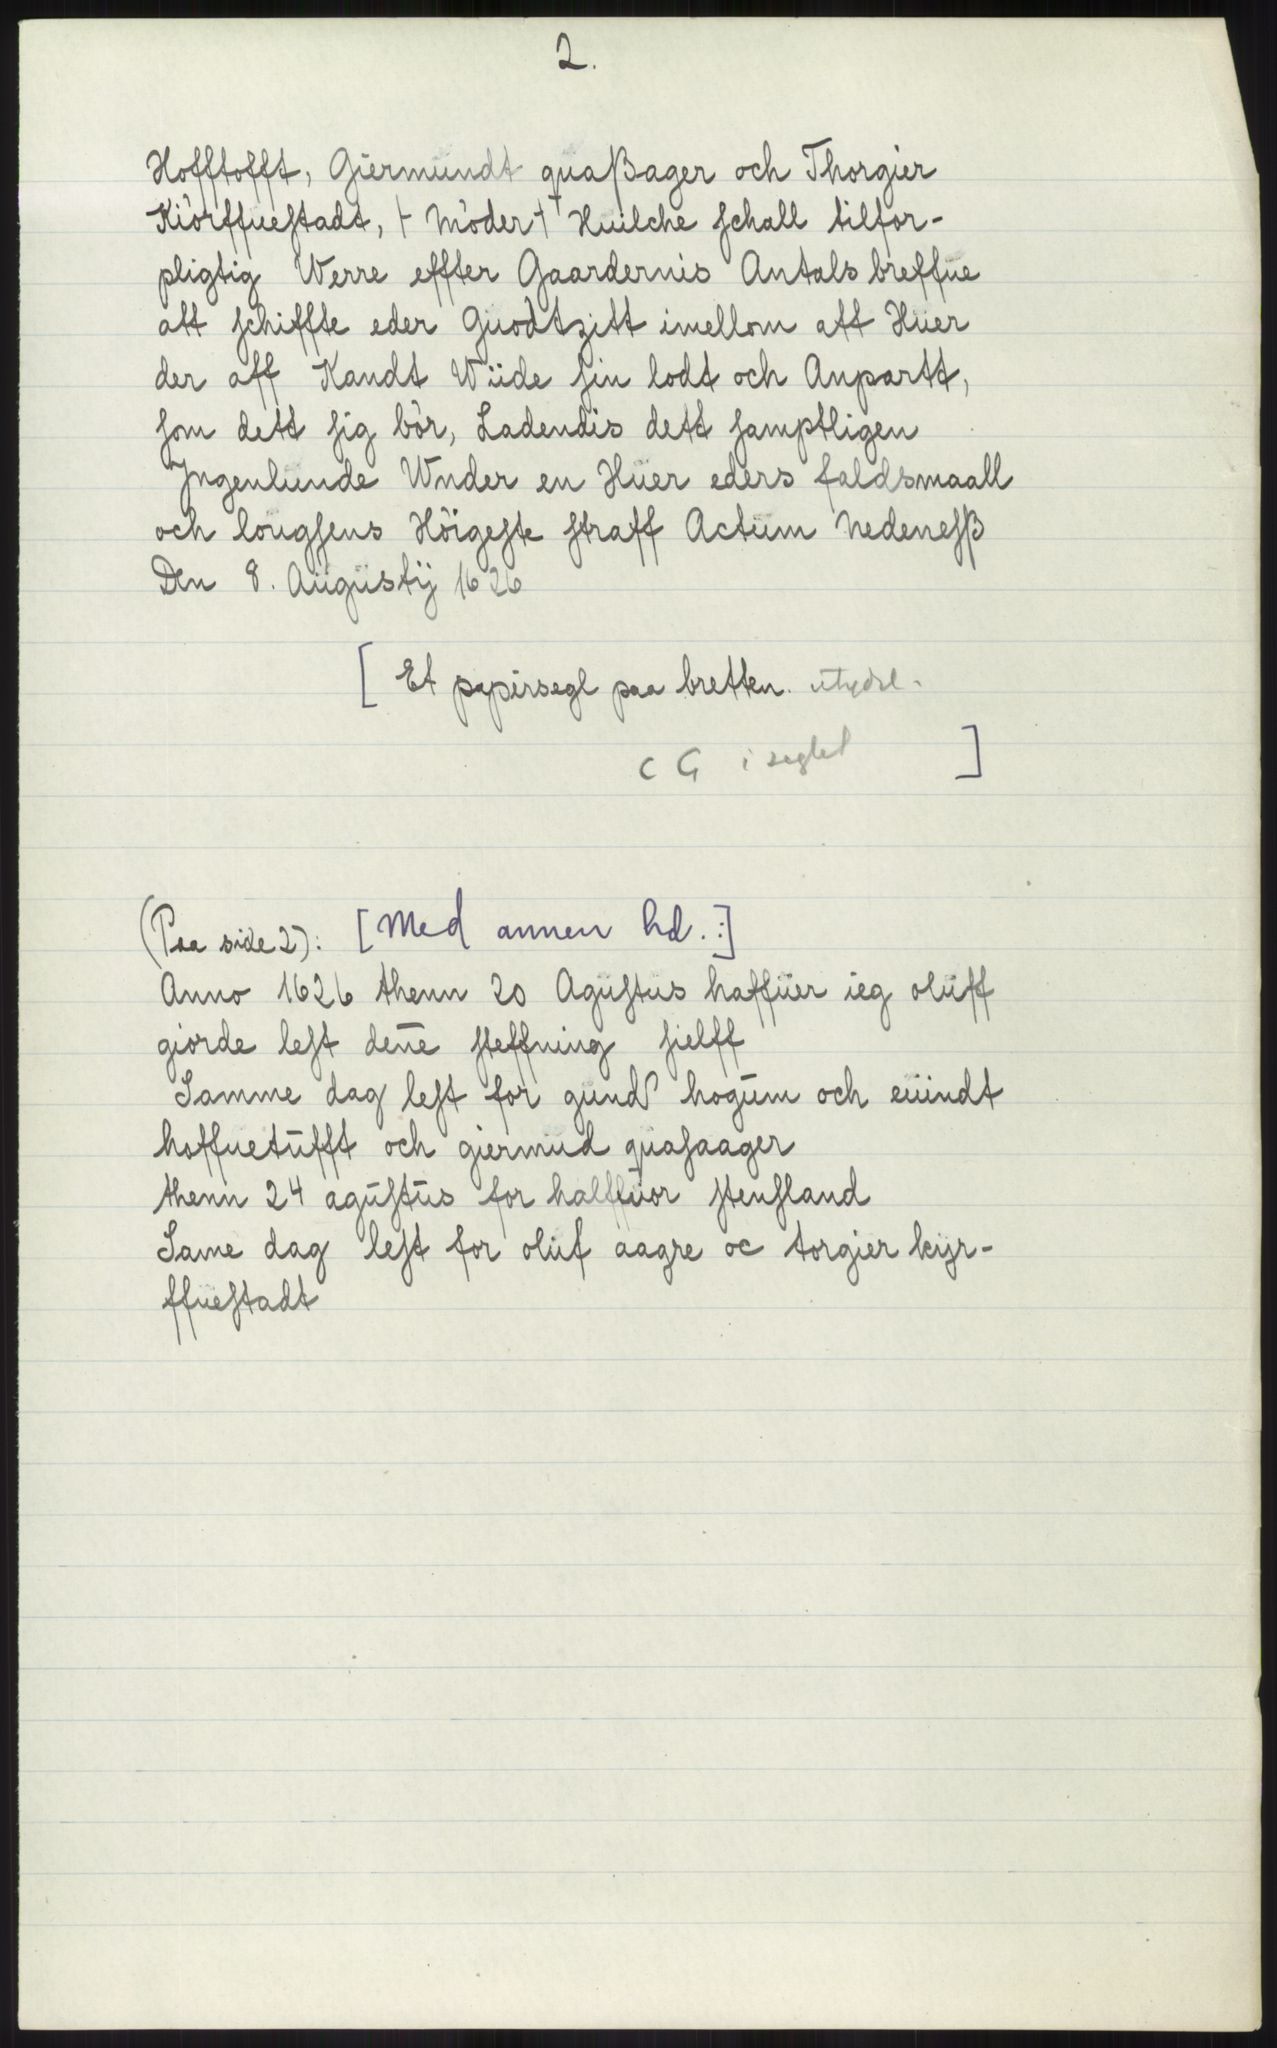 2.
Hofftofft, Giermundt quaßager och Thorgier
Kiörffuestadt, + Möder + Huilche schall tilfor-
pligtig Werre effter Gaardernis Antals breffue
att schiffte eder Guodtzitt imellom att Hüer
der aff Kandt Wiide sin lodt och Anpartt,
som dett sig bör, Ladendis dett samptligen
Jngenlunde Wnder en Hüer eders faldsmaall
och lougsens Höigeste straff Actum Nedenesß
Den 8. Augustij 1626
[ Et papirsegl paa bretten. utydel.
C G i seglet ]
(Paa side 2): [Med annen hd.:]
Anno 1626 thenn 20 Agustus haffüer ieg oluff
giorde lest dene steffning sielff
Samme dag lest for gund hogum och euindt
hoffuetufft och giermud quasaager
thenn 24 agustus for halffuor stensland
Same dag lest for oluf aagre oc torgier kyr-
ffuestadt